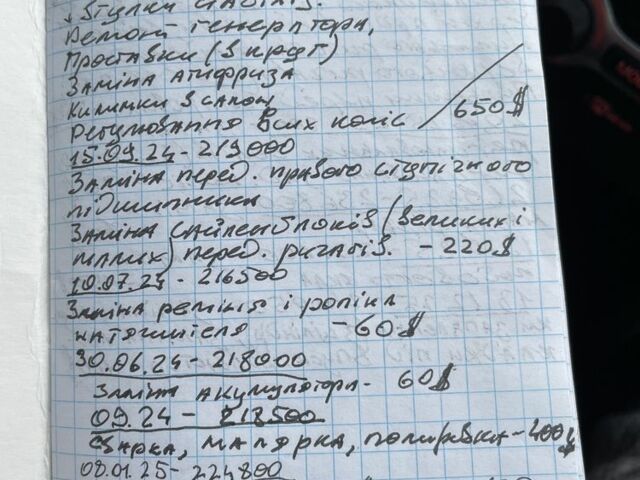 втулки стабіліз.
Ремонт генератора,
Проставки (в круг)
Заміна атифриза
Килимки в салон
Регулювання всих коліс 650$
15.09.24 - 219000
Заміна перед. правого ступічного
підшипника
Заміна сайленблоків (великих і
малих) перед. ричагів. - 220$
10.07.24 - 216500
Заміна реміня і роліка
натяжителя - 60$
30.06.24 - 218000
Заміна акумулятора - 60$
09.24 - 218500
Сварка, малярка, поліровка - 400$
08.01.25 - 224800